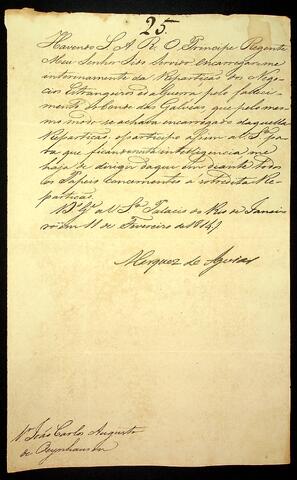 25.
Havendo S. A. R. O Principe Regente
Meu Senhor Sido Servido encarregar-me
interinamente da Repartição dos Nego-
cios Estrangeiros e da Guerra pelo falleci-
mento do Conde das Galveas que pelo mes-
mo modo se achava encarregado daquella
Repartição, o participo assim a V. Sª. pa-
ra que ficando nesta intelligencia me
haja de dirigir daqui em diante todos
os Papeis concernentes a sobredita Re-
partição.
Ds. Ge. a V. Sª. Palacio do Rio de Janei-
ro em 11 de Fevereiro de 1814
Marquez de Aguiar
Sr. João Carlos Augusto
de Oeynhausen